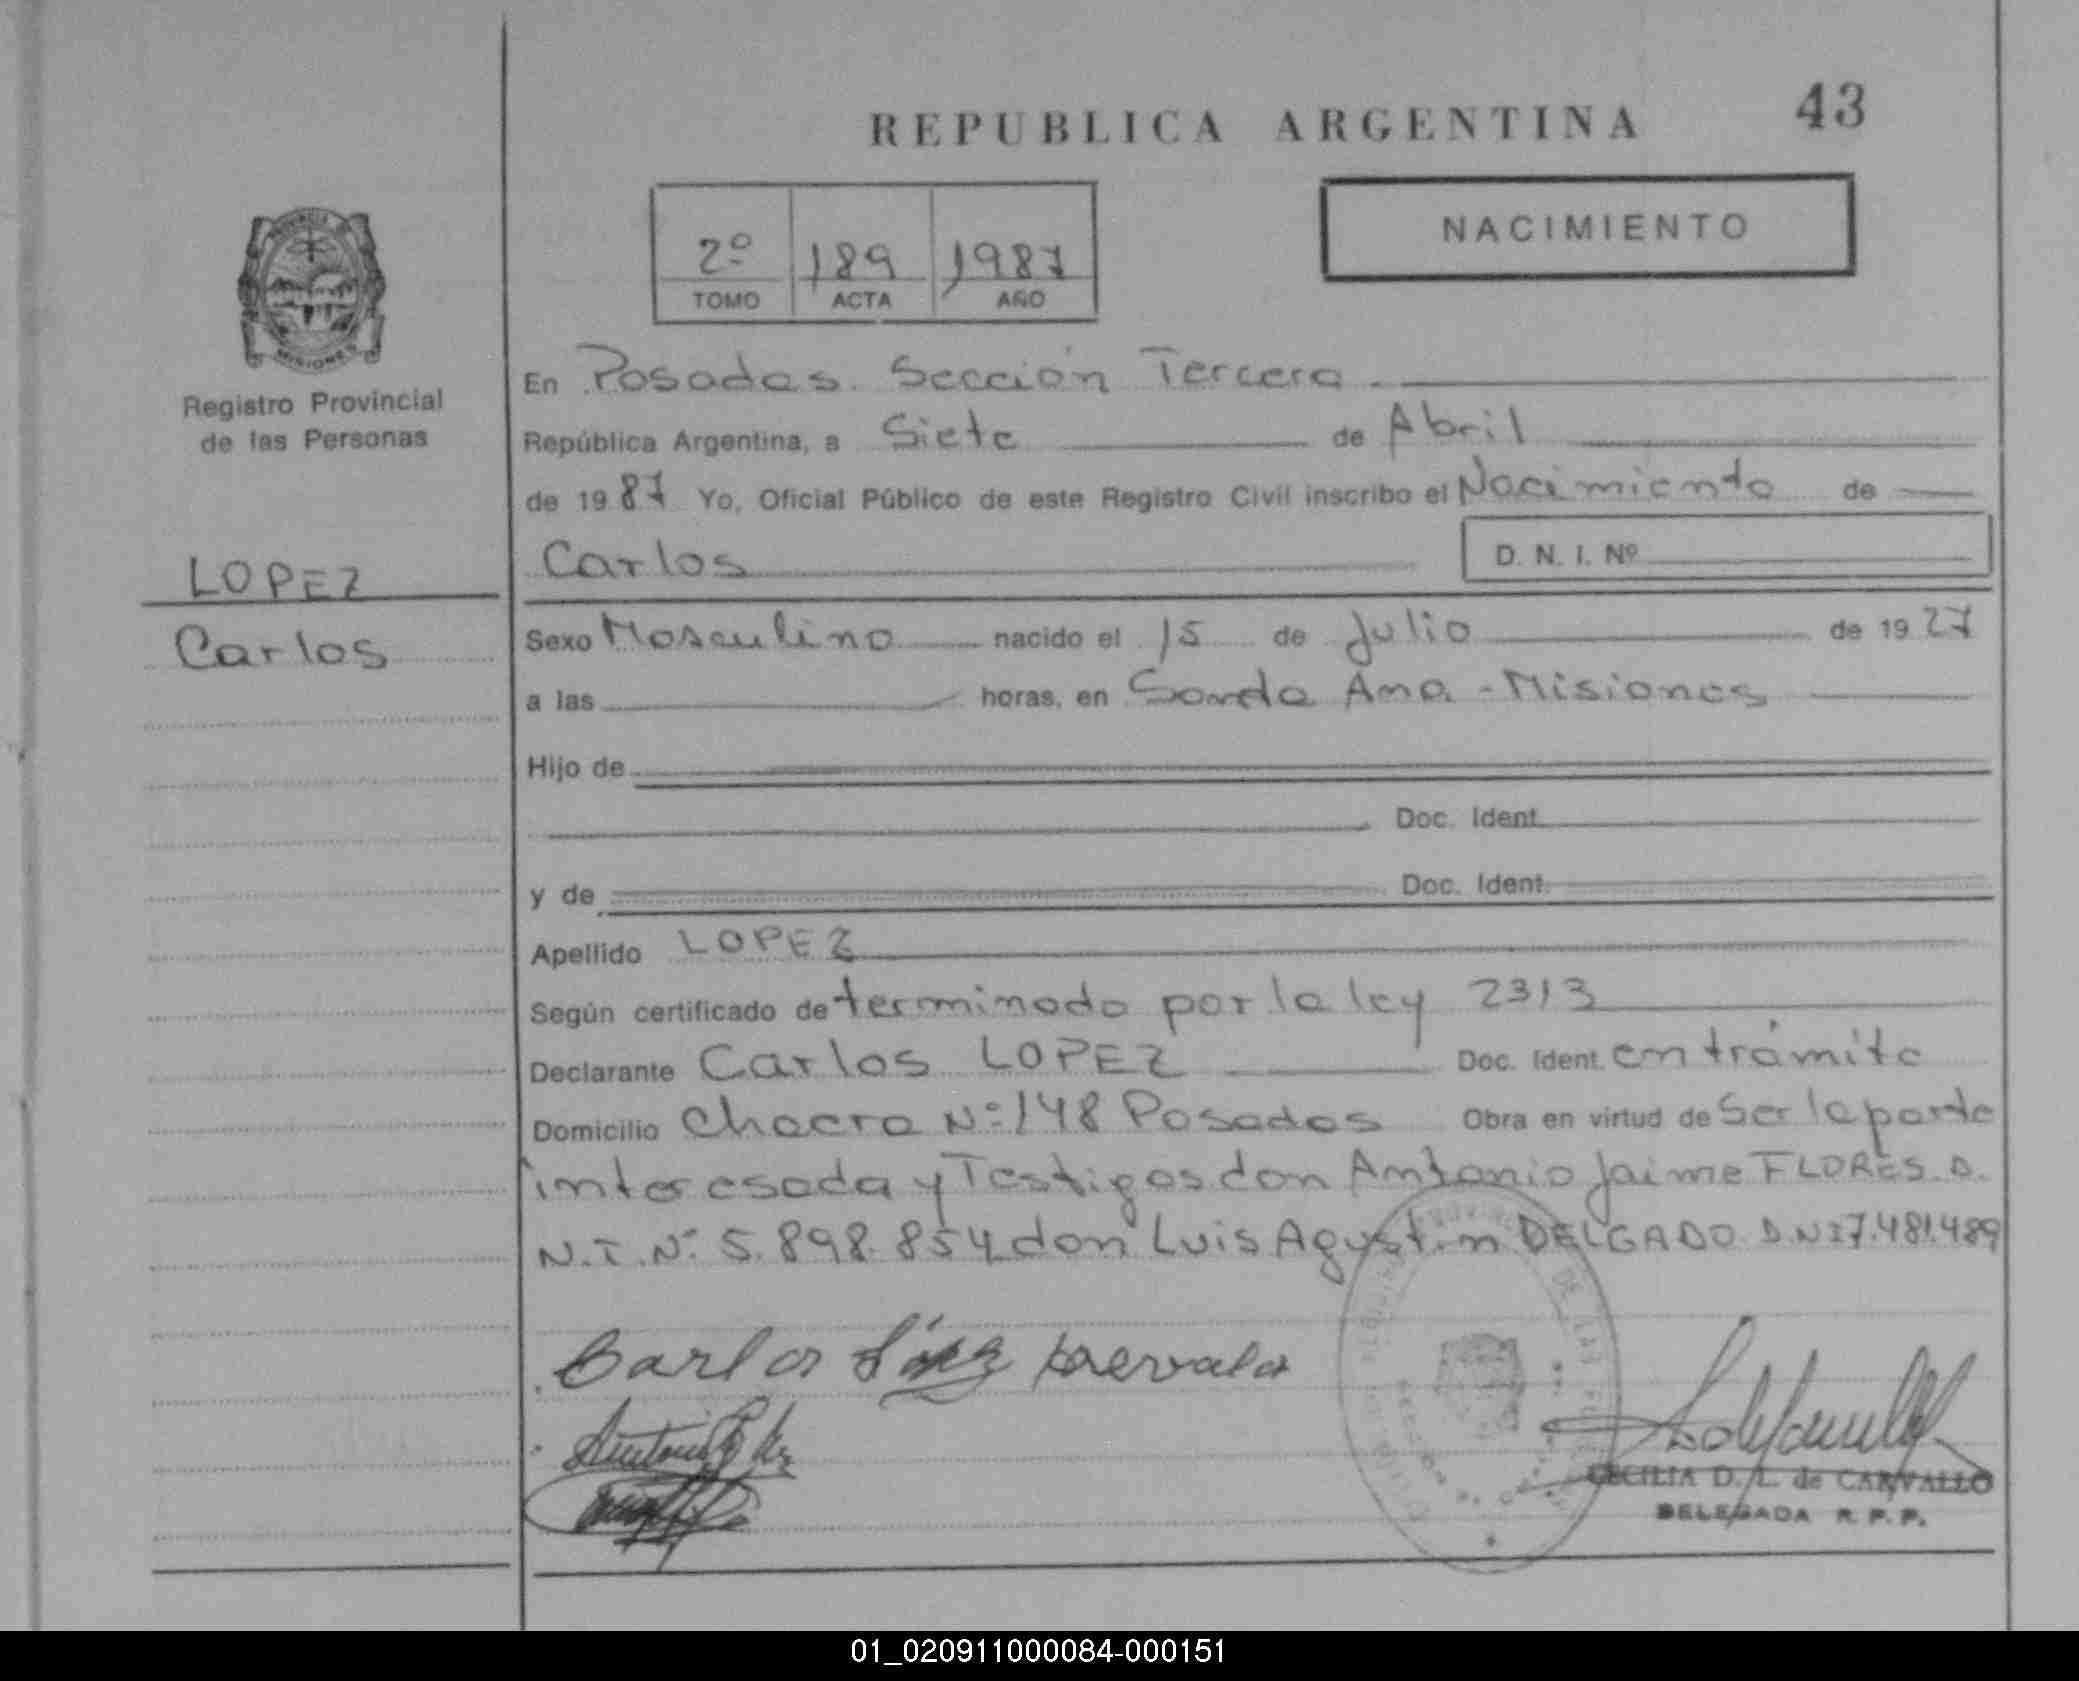 REPUBLICA ARGENTINA 43
NACIMIENTO
2º 189 1987
TOMO ACTA AÑO
MISIONES
Registro Provincial
de las Personas
LOPEZ
Carlos
En Posadas. Sección Tercera
República Argentina, a Siete de Abril
de 1987 Yo, Oficial Público de este Registro Civil inscribo el Nacimiento de
Carlos D. N. I. Nº
Sexo Masculino nacido el 15 de Julio de 1927
a las horas, en Santa Ana - Misiones
Hijo de
Doc. Ident.
y de Doc. Ident.
Apellido LOPEZ
Según certificado de terminado por la ley 2313
Declarante Carlos LOPEZ Doc. Ident. en trámite
Domicilio Chacra Nº 148 Posadas Obra en virtud de Ser la parte
interesada y Testigos don Antonio Jaime FLORES. D.
N.I.Nº 5.898.854 don Luis Agustin DELGADO D.N.I 7.481.489
Carlos
CECILIA D. L. de CARVALLO
DELEGADA R. P. P.
01_020911000084-000151